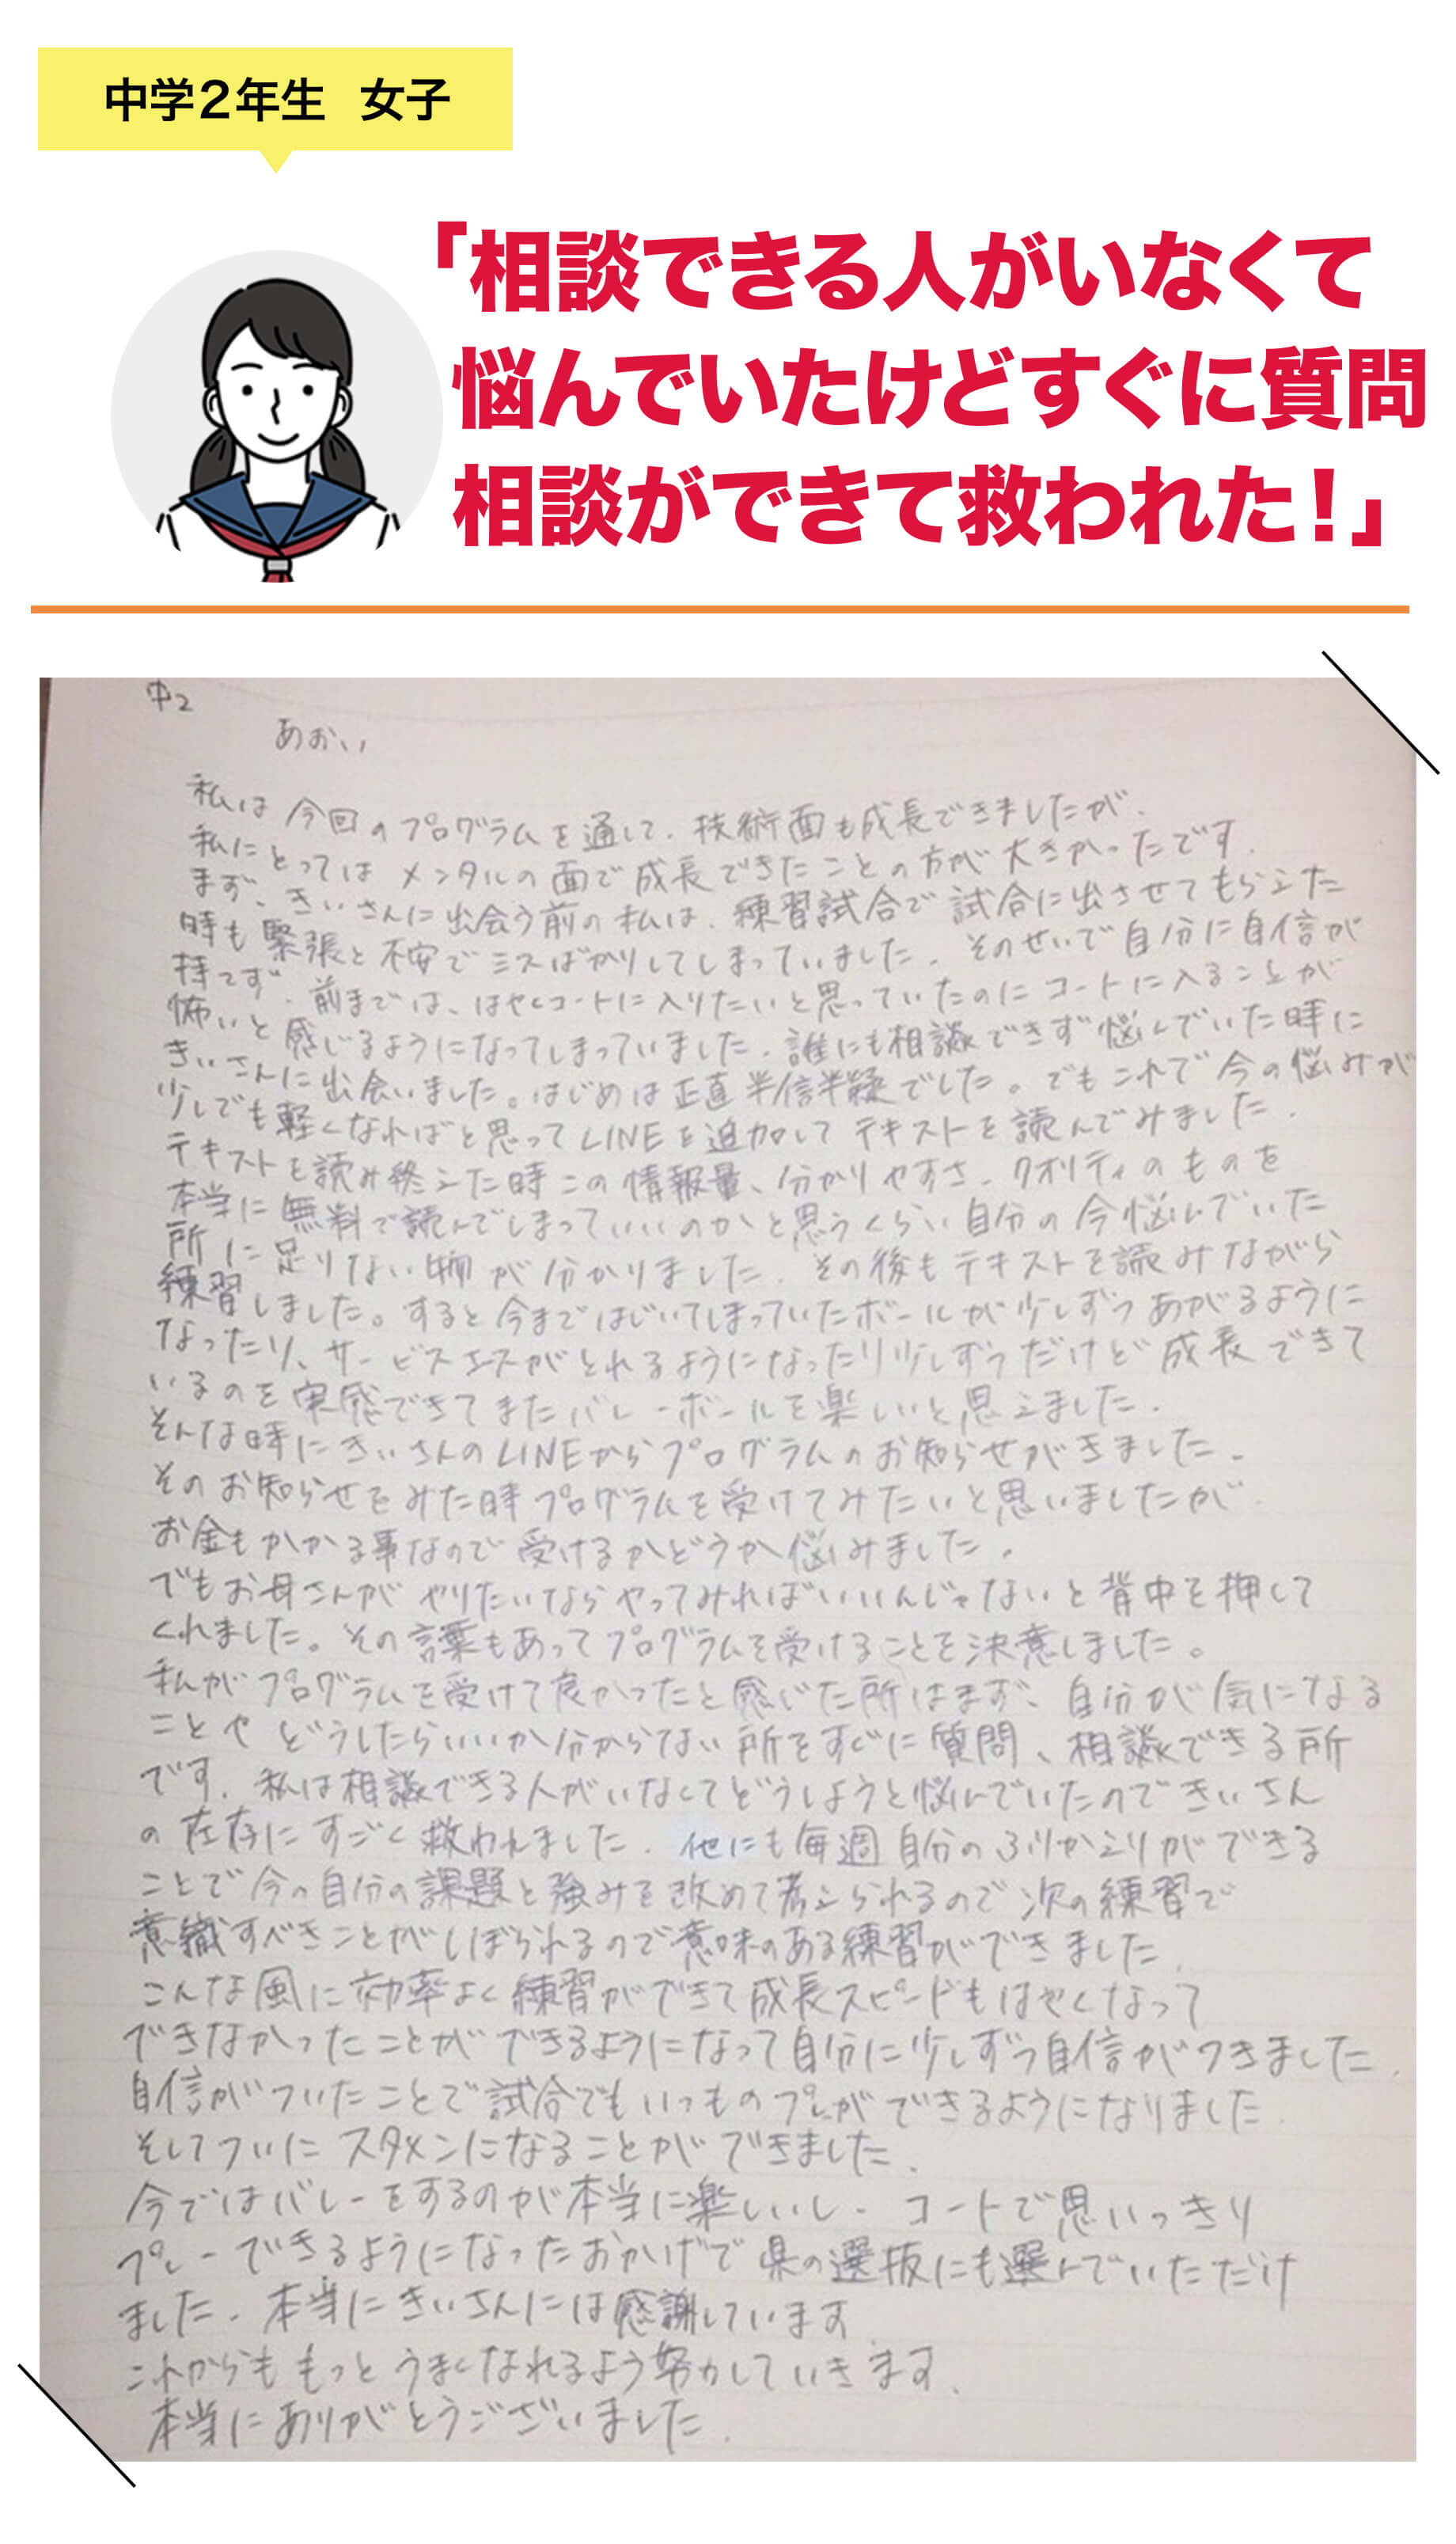 中学2年生 女子
「相談できる人がいなくて
悩んでいたけどすぐに質問
相談ができて救われた!」
中2
あおい
私は今回のプログラムを通して、技術面も成長できましたが、
私にとってはメンタルの面で成長できたことの方が大きかったです。
まず、きいさんに出会う前の私は、練習試合で試合に出させてもらえた
時も緊張と不安でミスばかりしてしまっていました。そのせいで自分に自信が
持てず、前までは、はやくコートに入りたいと思っていたのにコートに入ることが
怖いと感じるようになってしまっていました。誰にも相談できず悩んでいた時に
きいさんに出会いました。はじめは正直半信半疑でした。でもこれで今の悩みが
少しでも軽くなればと思ってLINEを追加してテキストを読んでみました。
テキストを読み終えた時この情報量、分かりやすさ、クオリティのものを
本当に無料で読んでしまっていいのかと思うくらい自分の今悩んでいた
所に足りない物が分かりました。その後もテキストを読みながら
練習しました。すると今まではじいてしまっていたボールが少しずつあがるように
なったり、サービスエースがとれるようになったり少しずつだけど成長できて
いるのを実感できてまたバレーボールを楽しいと思えました。
そんな時にきいさんのLINEからプログラムのお知らせがきました。
そのお知らせをみた時プログラムを受けてみたいと思いましたが、
お金もかかる事なので受けるかどうか悩みました。
でもお母さんがやりたいならやってみればいいんじゃないと背中を押して
くれました。その言葉もあってプログラムを受けることを決意しました。
私がプログラムを受けて良かったと感じた所はまず、自分が気になる
ことやどうしたらいいか分からない所をすぐに質問、相談できる所
です。私は相談できる人がいなくてどうしようと悩んでいたのできいさん
の存在にすごく救われました。他にも毎週自分のふりかえりができる
ことで今の自分の課題と強みを改めて考えられるので次の練習で
意識すべきことがしぼられるので意味のある練習ができました。
こんな風に効率よく練習ができて成長スピードもはやくなって
できなかったことができるようになって自分に少しずつ自信がつきました。
自信がついたことで試合でもいつものプレーができるようになりました
そしてついにスタメンになることができました。
今ではバレーをするのが本当に楽しいし、コートで思いっきり
プレーできるようになったおかげで県の選抜にも選んでいただけ
ました。本当にきいさんには感謝しています
これからももっとうまくなれるよう努力していきます。
本当にありがとうございました。